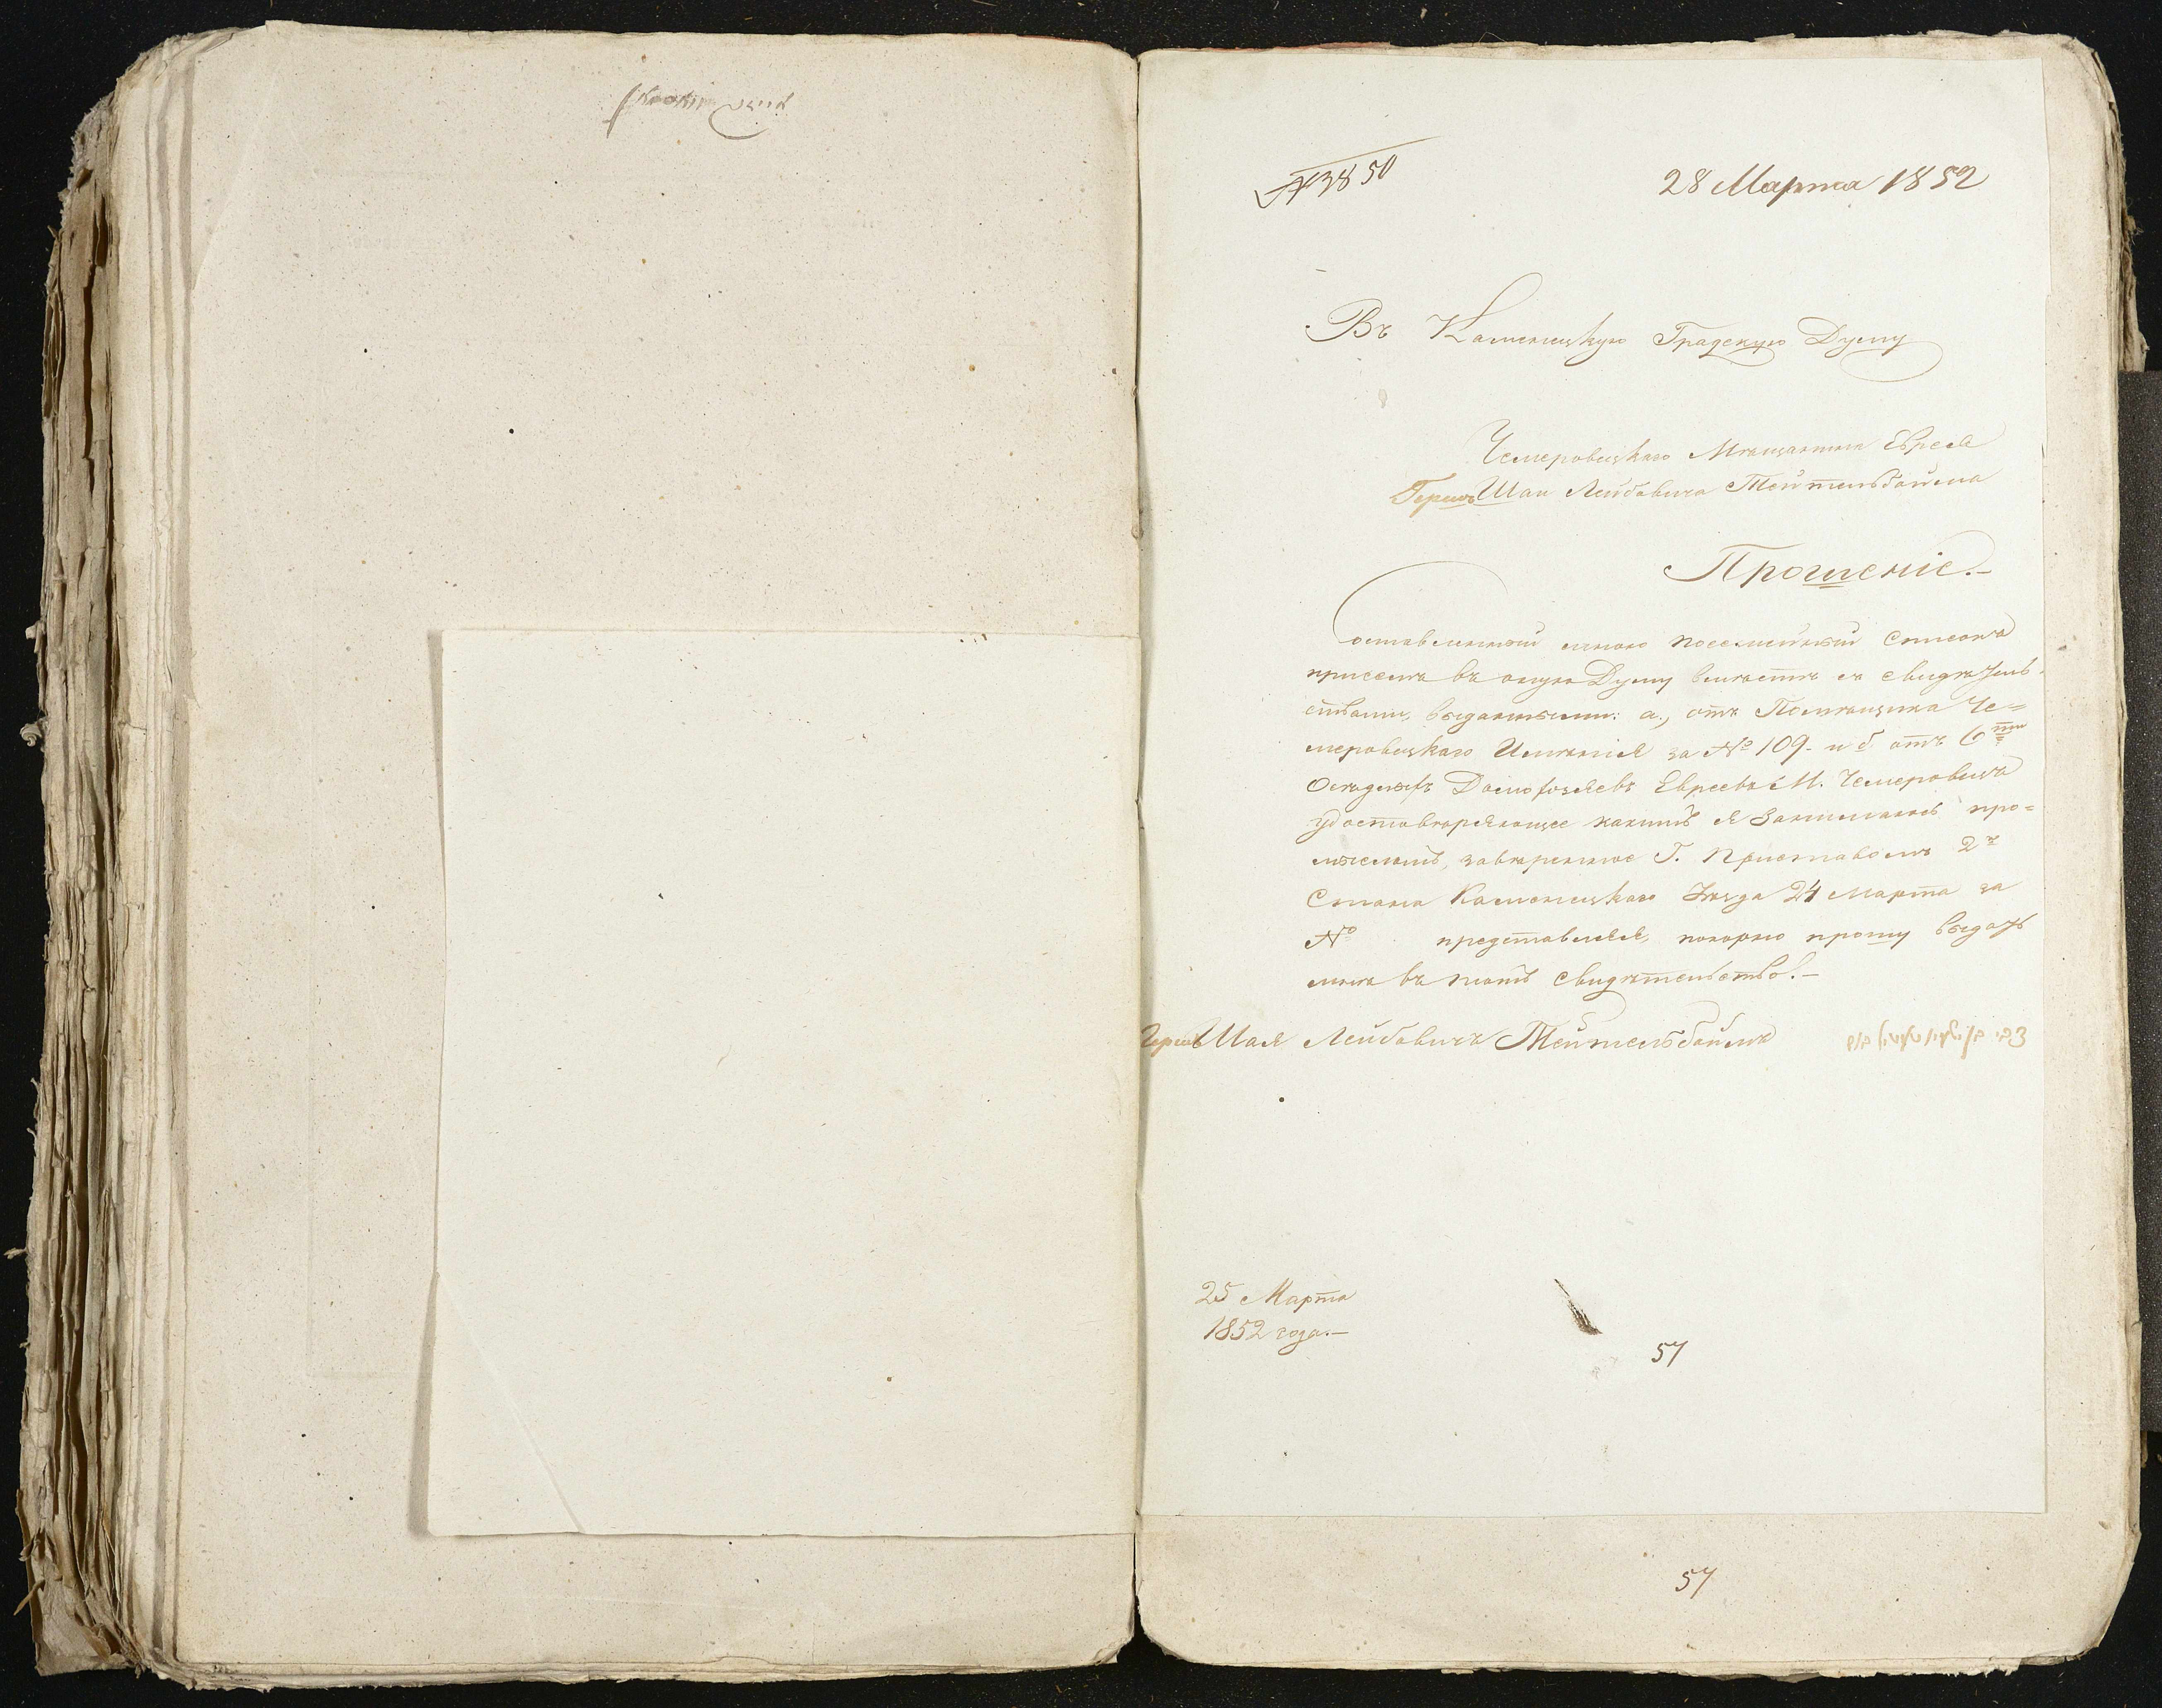 № 3850
28 Марта 1852
Въ Каменецкую Градскую Думу
Чемеровецкаго Мѣщанина Еврея
Гершъ Шаи Лейбовича Тейтельбойма
Прошеніе.—
Составленный мною посемейный списокъ
при семъ въ оную Думу вмѣстѣ съ свидѣтель-
ствами, выданными: а., отъ Помѣщика Че=
меровецкаго Имѣнія за № 109. и б отъ 6ти
Осѣдлыхъ Домохозяевъ Евреевъ М. Чемеровецъ
удостовѣряющее какимъ я занимаюсь про=
мысломъ, завѣренное Г. Приставомъ 2го
Стана Каменецкаго Уѣзда 24 Марта за
№ представляя, покорно прошу выдать
мнѣ въ томъ свидѣтельство.—
Гершъ Шая Лейбовичъ Тейтельбоймъ צבי
25 Марта
1852 года.—
57
57